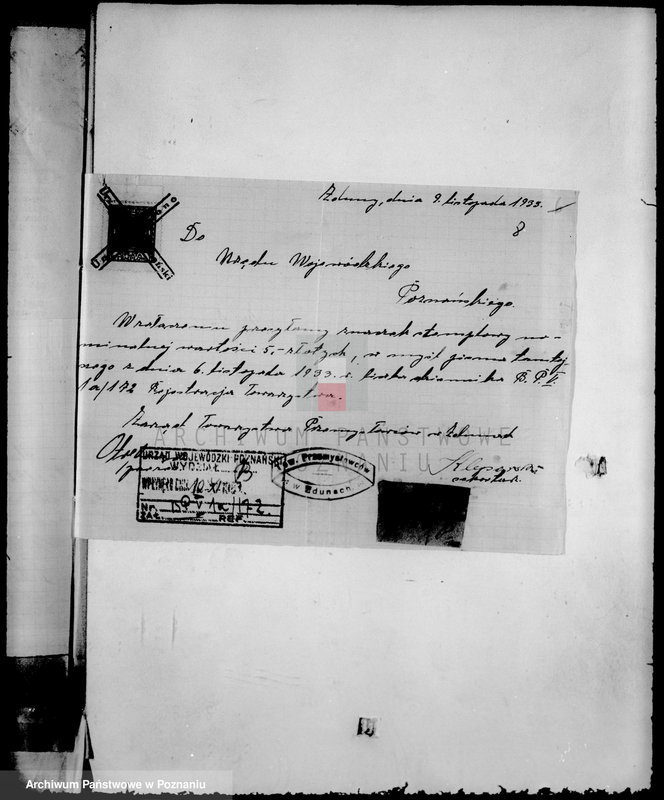 Zduny, dnia 9. listopada 1933.
8
Do
Urzędu Wojewódzkiego
Poznańskiego.
W załączeniu przesyłamy znaczek stemplowy no-
minalnej wartości 5,- złotych, w myśl pisma tamtej
szego z dnia 6. listopada 1933. r. liczba dziennika B. P. V
1a/172 Rejestracja Towarzystw.
Zarząd Towarzystwa Przemysłowców w Zdunach
URZĄD WOJEWÓDZKI POZNAŃSKI
WYDZIAŁ B
WPŁYNĘŁO DNIA 10 XI
Nr. BP V 1a/172
ZAŁ. REF.
Tow. Przemysłowców
w Zdunach
sekretarz.
ARCHIWUM PAŃSTWOWE
W POZNANIU
Archiwum Państwowe w Poznaniu